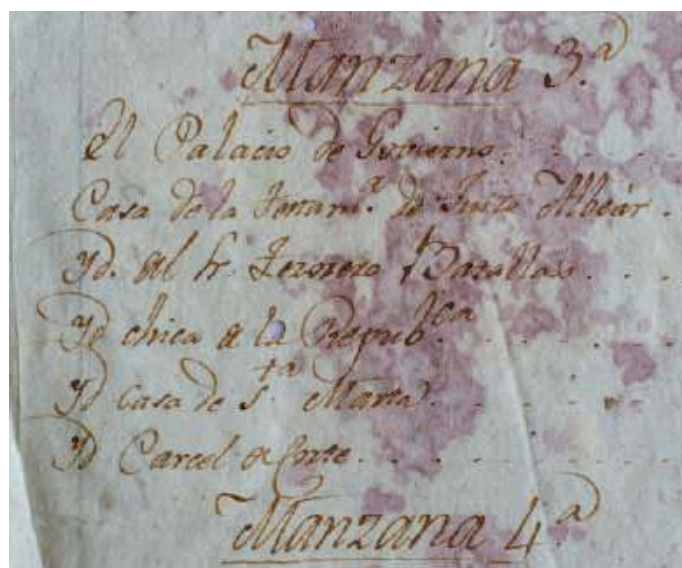 Manzana 3.ª
El Palacio de Govierno.
Casa de la Testam.ª de Albear.
Yd. al Sr. Terrero
Yd chica de la Repub.ca
Yd Casa de S.ta Marta.
Yd Carcel de Corte.
Manzana 4ª